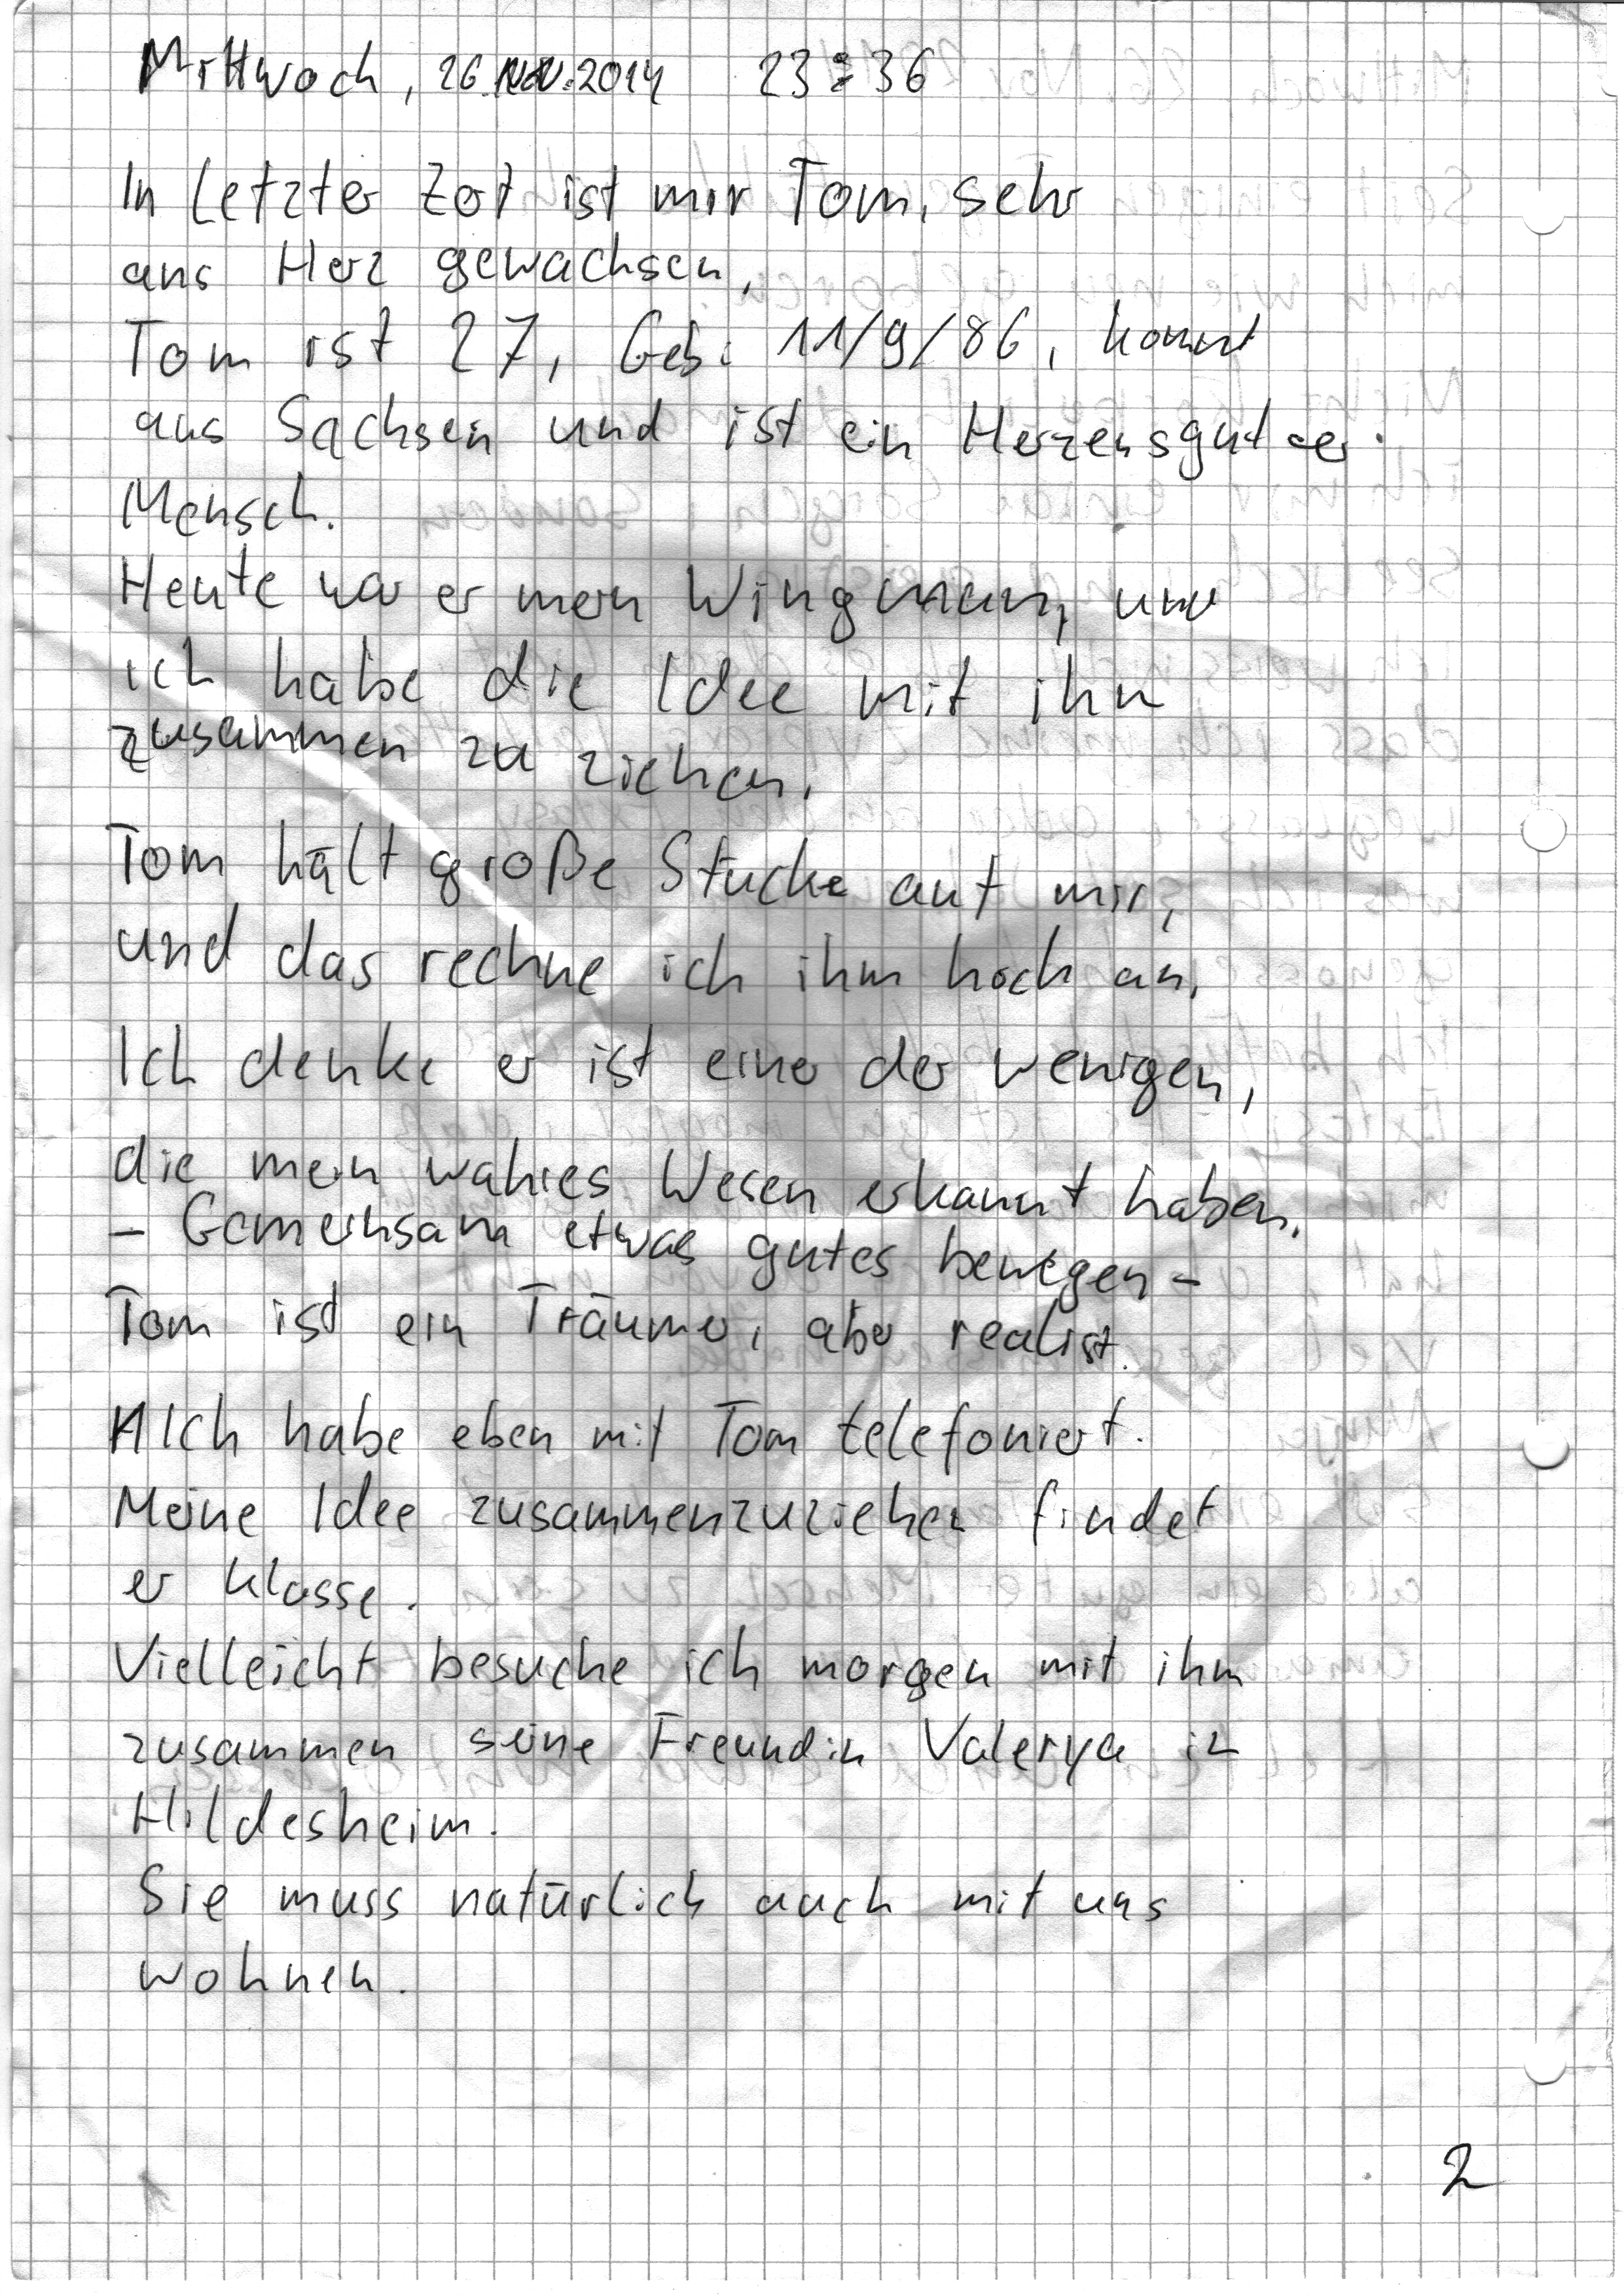 Mittwoch, 26.Nov.2014 23:36
In letzter Zeit ist mir Tom, sehr
ans Herz gewachsen,
Tom ist 27, Geb: 11/9/86, kommt
aus Sachsen und ist ein Herzensguter
Mensch.
Heute war er mein Wingman, und
ich habe die Idee mit ihm
zusammen zu ziehen.
Tom hält große Stücke auf mir,
und das rechne ich ihm hoch an,
Ich denke er ist einer der wenigen,
die mein wahres Wesen erkannt haben.
- Gemeinsam etwas gutes bewegen -
Tom ist ein Träumer, aber realist.
Ich habe eben mit Tom telefoniert.
Meine Idee zusammenzuziehen findet
er klasse.
Vielleicht besuche ich morgen mit ihm
zusammen seine Freundin Valerya in
Hildesheim.
Sie muss natürlich auch mit uns
wohnen.
2